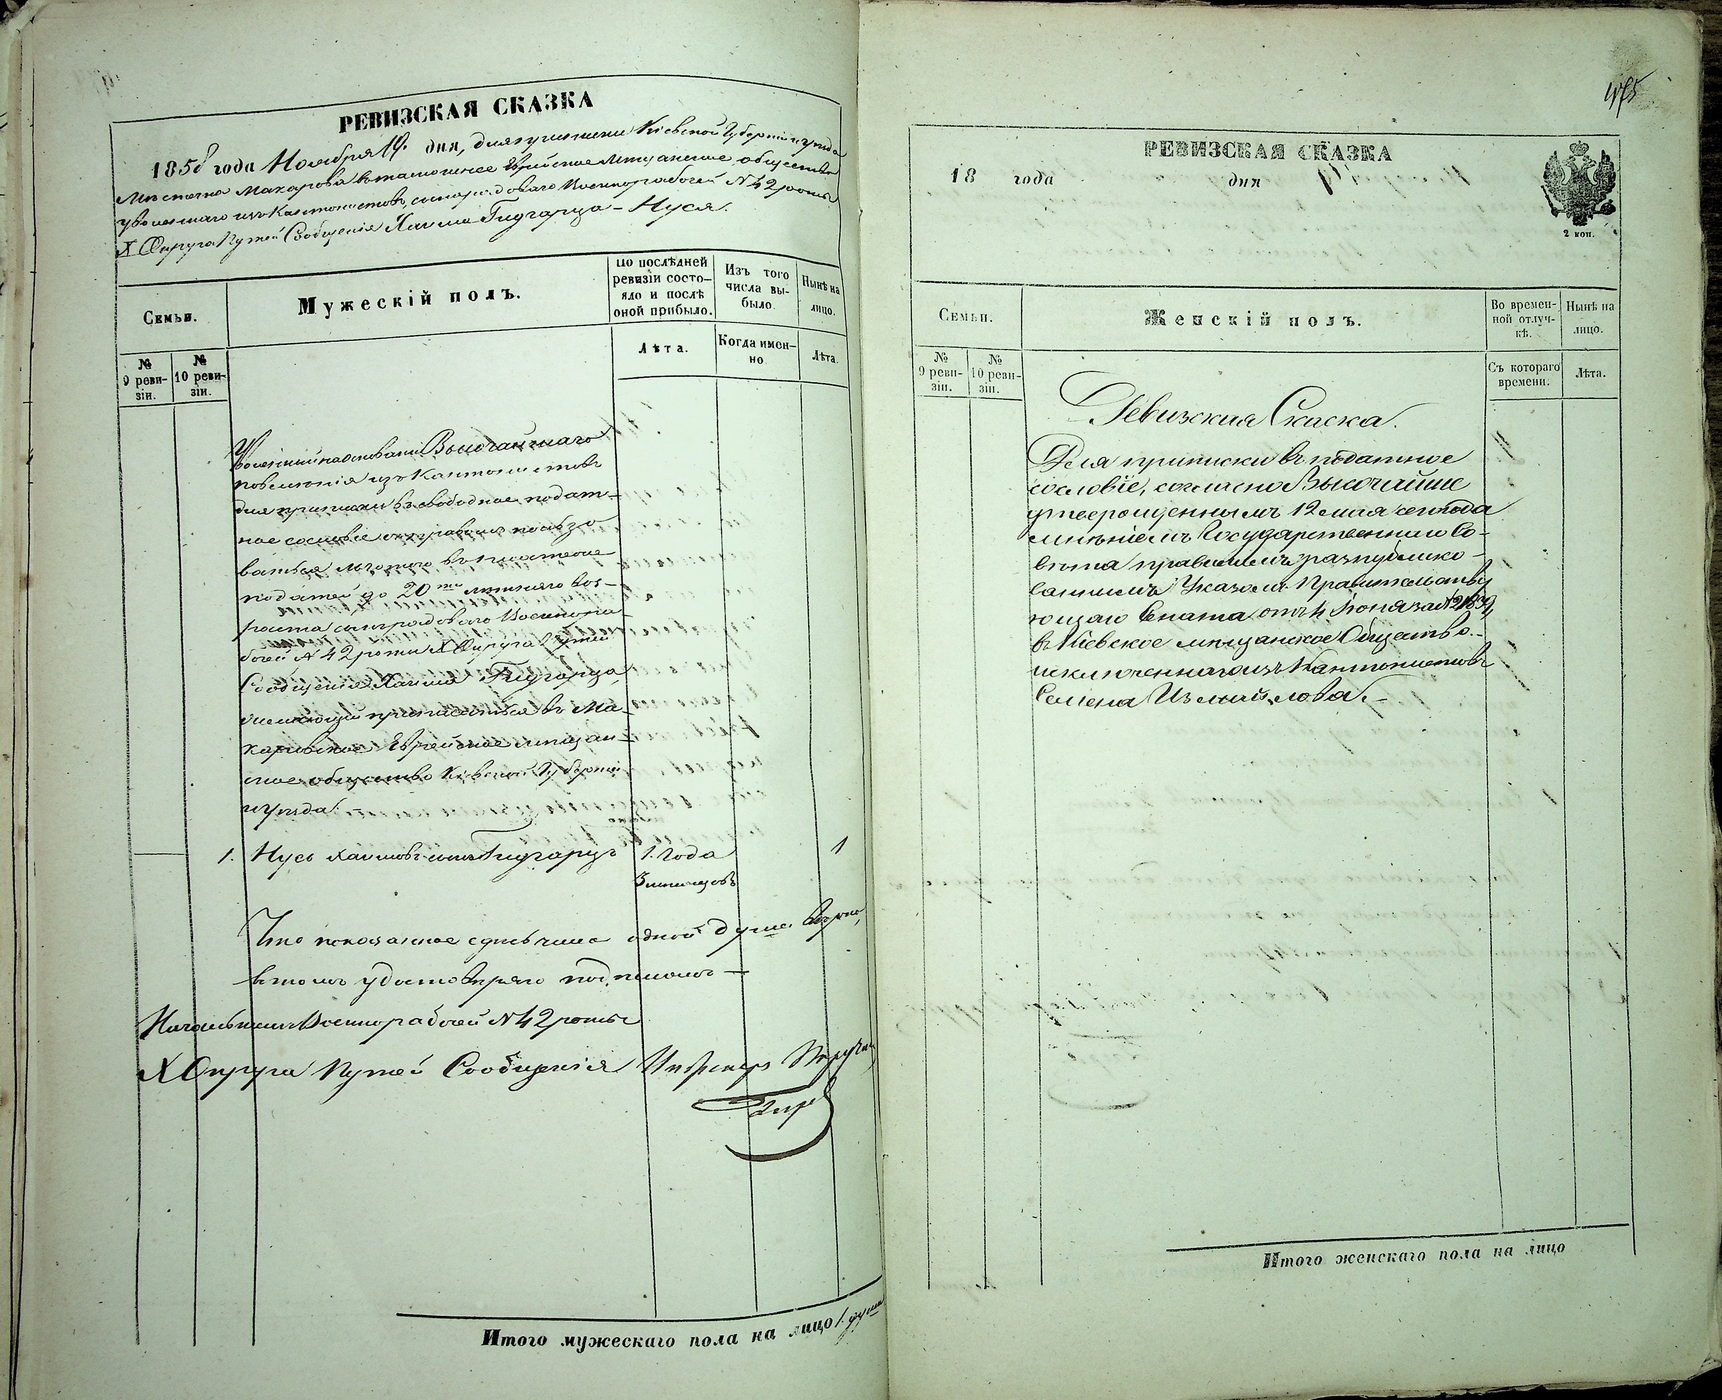 РЕВИЗСКАЯ СКАЗКА
1858 года Ноября 19 дня, для причисленія Кіевской Губерніи и уѣзда
мѣстечка Макарова въ таковое Еврейское Мѣщанское общество
уволеннаго изъ Кантонистовъ, сына рядоваго Военнорабочей № 42 роты
X Округа Путей Сообщенія Хаима Гидгарца – Нуся.
Семьи.
Мужескій полъ.
По послѣдней ревизіи состо-
яло и послѣ
оной прибыло.
Изъ того
числа вы-
было
Нынѣ на
лицо.
№
9 реви-
зіи.
№
10 реви-
зіи.
Лѣта.
Когда имен-
но
Лѣта.
Уволенный на основаніи Высочайшаго
повелѣнія изъ Кантонистовъ
для приписки въ свободное подат-
ное сословіе съ правомъ пользо
ваться льготою въ платеже
податей до 20ти лѣтняго воз-
раста сынъ рядоваго Военнора
бочей № 42 роты X Округа Путей
Сообщенія Хаима Гидгарца
желающій приписаться въ Ма-
каровское Еврейское мѣщан-
ское общество Кіевской Губерніи
и уѣзда: –
1. Нусь Хаимовъ сынъ Гидгарцъ 1. года 1
3 мѣсяцовъ
Что показанное здѣсь число одной души вѣрно,
въ томъ удостовѣряю подписомъ –
Начальникъ Военнорабочей № 42 роты
X Округа Путей Сообщенія Инженеръ
Итого мужескаго пола на лицо 1. душа
475
РЕВИЗСКАЯ СКАЗКА
18 года дня
2 коп.
Семьи.
Женскій полъ.
Во времен-
ной отлуч-
кѣ.
Нынѣ на
лицо.
№
9 реви-
зіи.
№
10 реви-
зіи.
Съ котораго
времени.
Лѣта.
Ревизская Скаска.
Для приписки въ податное
сословіе, согласно Высочайше
утвержденнымъ 12 мая сего года
мнѣніемъ Государственнаго Со-
вѣта правиламъ распублико-
ваннымъ Указомъ Правительству
ющаго Сената отъ 4 Іюня за №
въ Кіевское мѣщанское Общество
исключеннаго изъ Кантонистовъ
Семена Измайлова. –
Итого женскаго пола на лицо